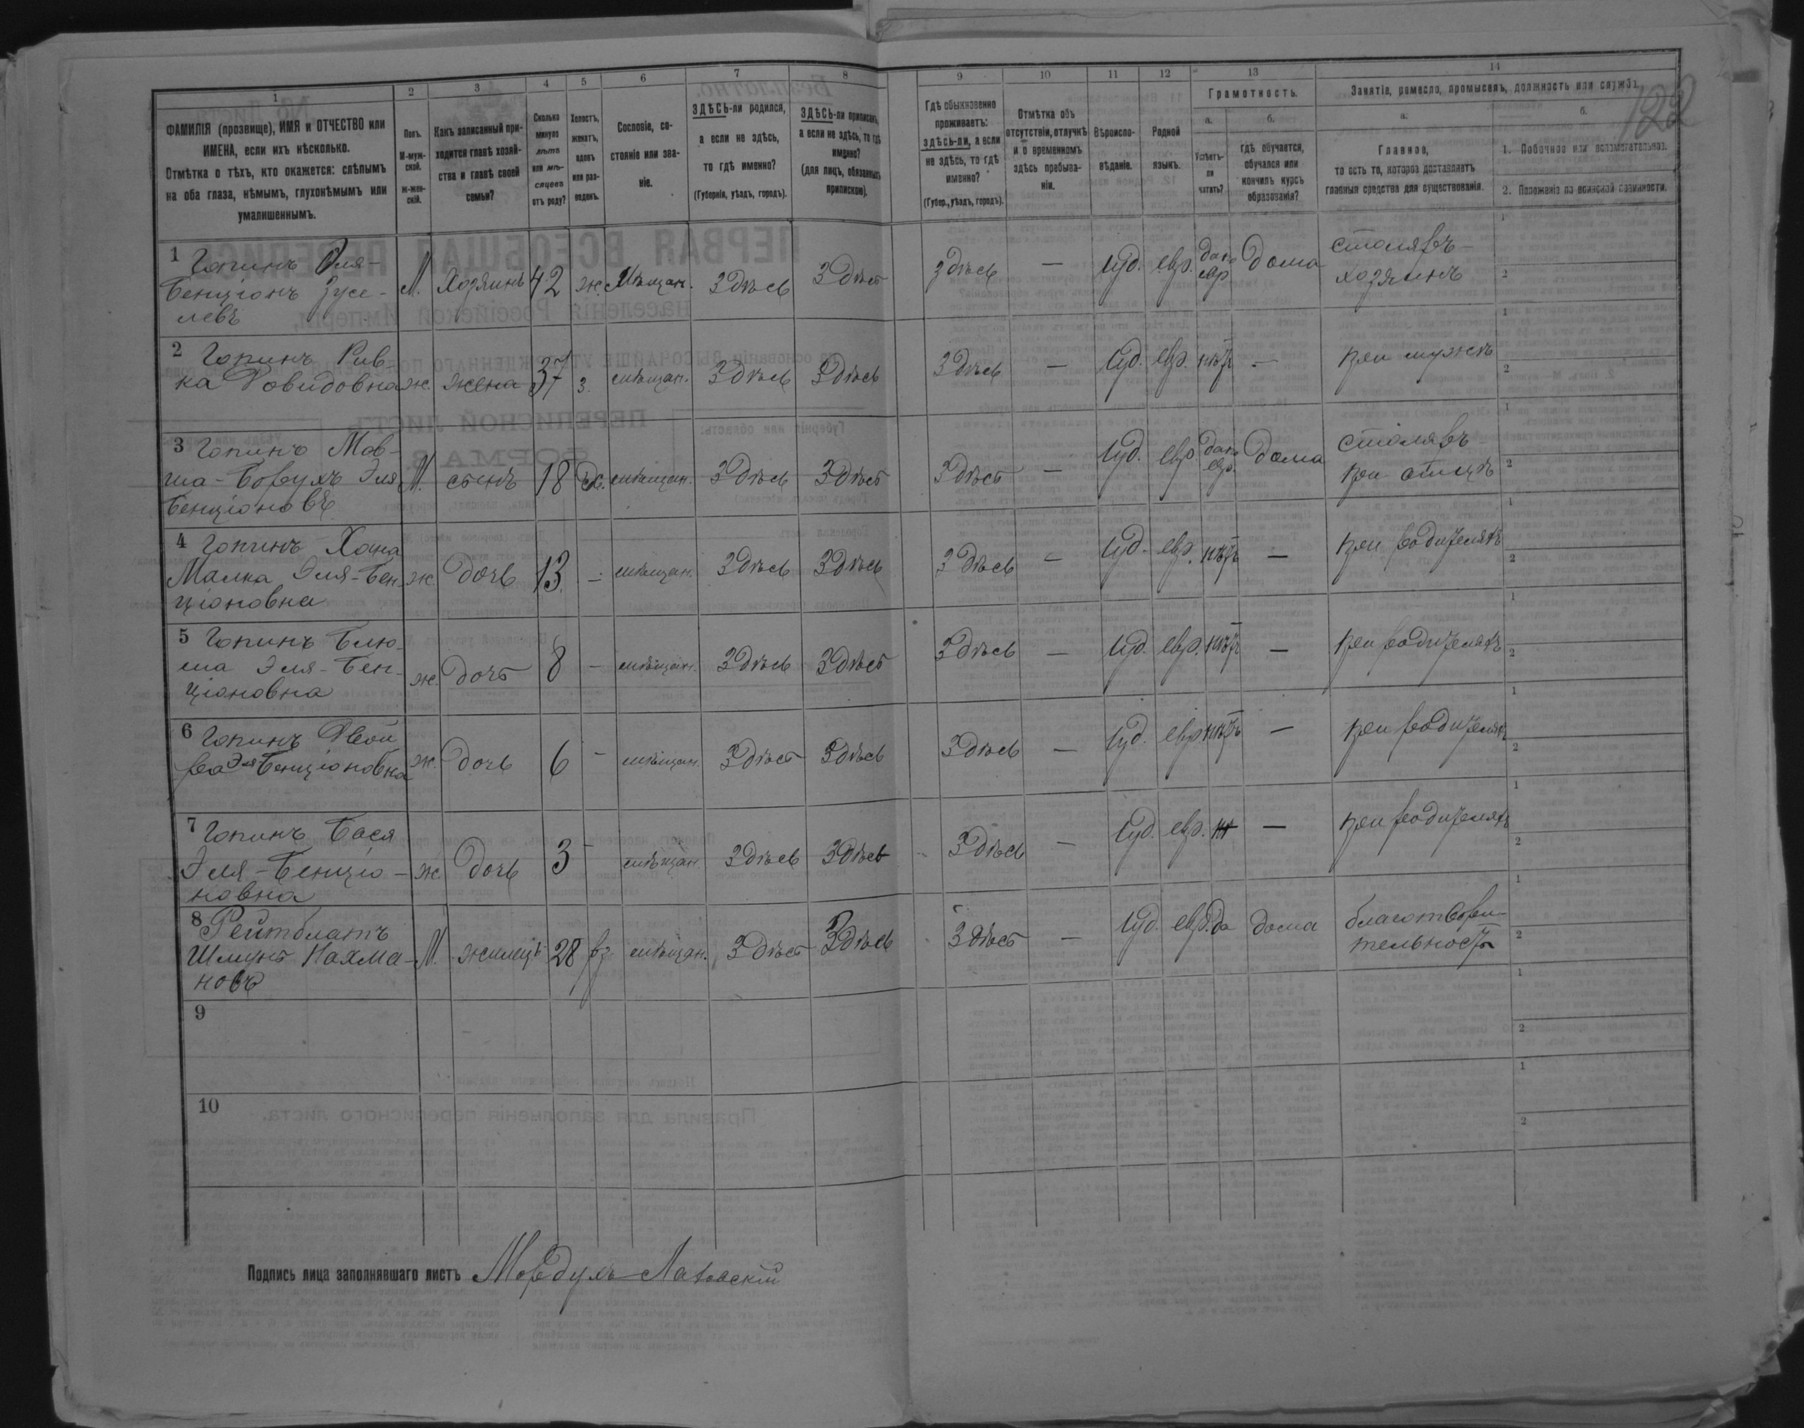 1 2 3 4 5 6 7 8 9 10 11 12 13 14
122
ФАМИЛІЯ (прозвище), ИМЯ и ОТЧЕСТВО или
ИМЕНА, если ихъ нѣсколько.
Отмѣтка о тѣхъ, кто окажется: слѣпымъ
на оба глаза, нѣмымъ, глухонѣмымъ или
умалишеннымъ.
Полъ.
М-муж-
ской.
Ж-жен-
скій.
Какъ записанный при-
ходится главѣ хозяй-
ства и главѣ своей
семьи?
Сколько
минуло
лѣтъ
или мѣ-
сяцевъ
отъ роду?
Холостъ,
женатъ,
вдовъ
или раз-
веденъ.
Сословіе, со-
стояніе или зва-
ніе.
ЗДѢСЬ-ли родился,
а если не здѣсь,
то гдѣ именно?
(Губернія, уѣздъ, городъ).
ЗДѢСЬ-ли приписанъ,
а если не здѣсь, то гдѣ
именно?
(для лицъ, обязанныхъ
припиской).
Гдѣ обыкновенно
проживаетъ:
здѣсь-ли, а если
не здѣсь, то гдѣ
именно?
(Губер., уѣздъ, городъ).
Отмѣтка объ
отсутствіи, отлучкѣ
и о временномъ
здѣсь пребыва-
ніи.
Вѣроиспо-
вѣданіе.
Родной
языкъ.
Грамотность.
а.
Умѣетъ-
ли
читать?
б.
гдѣ обучается,
обучался или
кончилъ курсъ
образованія?
Занятіе, ремесло, промыселъ, должность или служба.
а.
Главное,
то есть то, которое доставляетъ
главныя средства для существованія.
б.
1. Побочное или вспомогательное.
2. Положеніе по воинской повинности.
1 Гопинъ Эля-
Бенціонъ Зусе-
левъ
М. Хозяинъ 42 ж. Мѣщан. Здѣсь Здѣсь Здѣсь — Іуд. евр. да по евр. дома столяръ-
хозяинъ
2 Гопинъ Рив-
ка Довидовна ж. жена 37 з. мѣщан. Здѣсь Здѣсь Здѣсь — Іуд. евр. нѣтъ — при мужѣ
3 Гопинъ Мов-
ша-Борухъ Эля
Бенціоновъ
М. сынъ 18 х. мѣщан. Здѣсь Здѣсь Здѣсь — Іуд. евр да по евр. дома столяръ
при отцѣ
4 Гопинъ Хана
Малка Эля-Бен-
ціоновна
ж дочь 13 — мѣщан. Здѣсь Здѣсь Здѣсь — Іуд. евр. нѣтъ — при родителяхъ
5 Гопинъ Блю-
ма Эля-Бен-
ціоновна
ж. дочь 8 — мѣщан. Здѣсь Здѣсь Здѣсь — Іуд. евр. нѣтъ — при родителяхъ
6 Гопинъ Двой
ра Эля Бенціоновна
ж. дочь 6 — мѣщан. Здѣсь Здѣсь Здѣсь — Іуд. евр нѣтъ — при родителяхъ
7 Гопинъ Бася
Эля-Бенціо-
новна
ж. дочь 3 — мѣщан Здѣсь Здѣсь Здѣсь — Іуд. евр. — при родителяхъ
8 Рейтблатъ
Шмуль Нахма-
новъ
М. жилецъ 28 рз мѣщан. Здѣсь Здѣсь Здѣсь — Іуд. евр. да дома благотвори-
тельность
9
10
Подпись лица заполнявшаго листъ Мордухъ